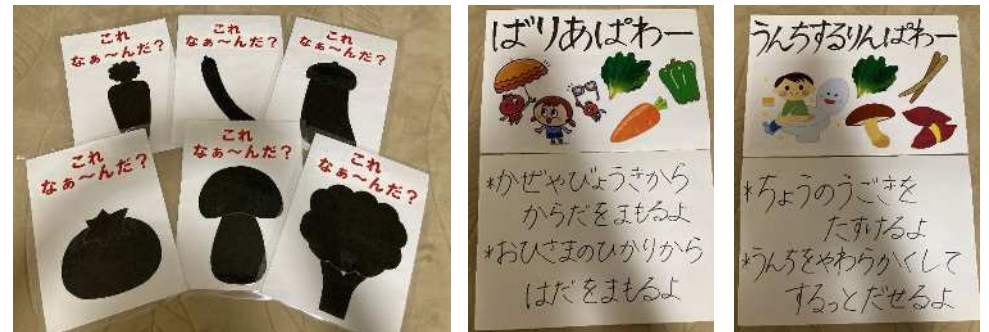 これ
なぁ～んだ？
これ
なぁ～んだ？
これ
なぁ～んだ？
これ
なぁ～んだ？
これ
なぁ～んだ？
これ
なぁ～んだ？
ばりあぱわー
*かぜやびょうきから
からだをまもるよ
*おひさまのひかりから
はだをまもるよ
うんちするりんぱわー
*ちょうのうごきを
たすけるよ
*うんちをやわらかくして
するっとだせるよ